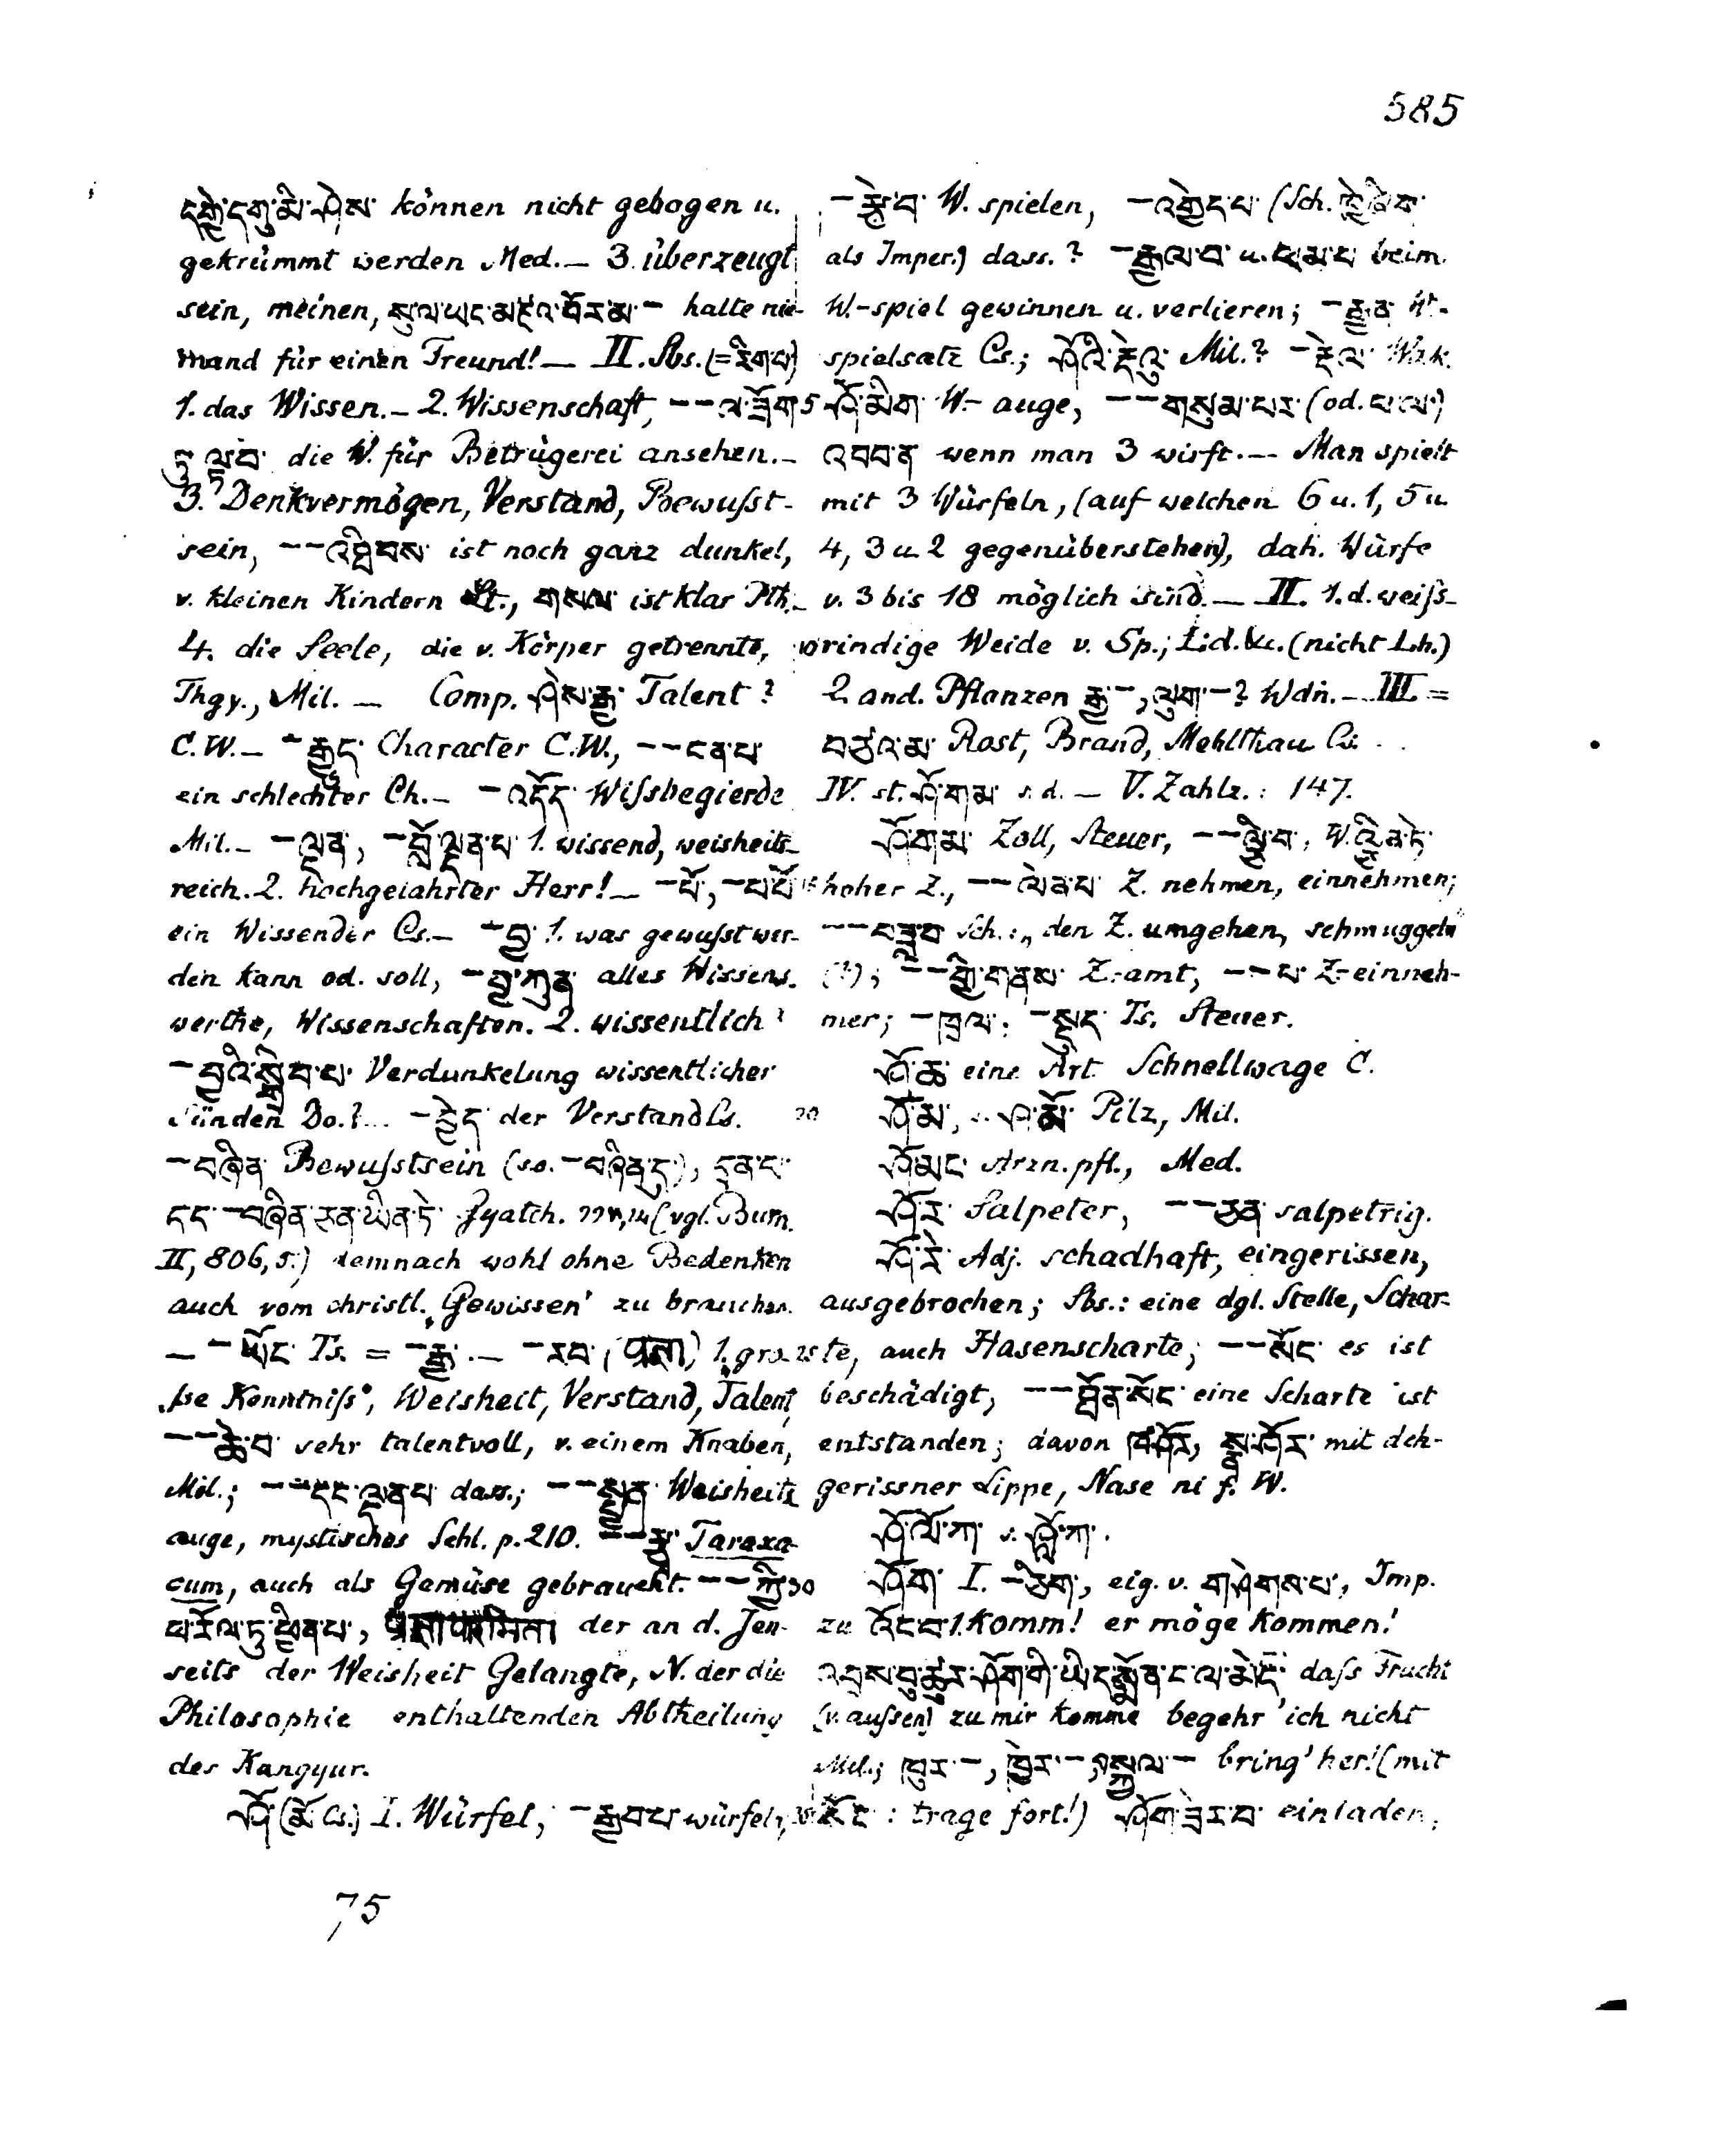 585
དགྱེ་དགུ་མི་ཤེས་ können nicht gebogen u.
gekrümmt werden Med. — 3. überzeugt
sein, meinen, སུ་ལ་ཡང་མཛའ་བོར་མ་ – halte nie-
mand für einen Freund! — II. Sbs. (= རིག་པ)
1. das Wissen. – 2. Wissenschaft, – – ལ་ཟོག་
ཏུ་ལྟ་བ་ die W. für Betrügerei ansehen. –
3. Denkvermögen, Verstand, Bewusst-
sein, – – འཐིབས་ ist noch ganz dunkel,
v. kleinen Kindern Lt., གསལ་ ist klar Pth. –
4. die Seele, die v. Körper getrennte,
Thgy., Mil. — Comp. ཤེས་རྒྱ་ Talent?
C. W. – – རྒྱུད་ Character C. W., – – ངན་པ་
ein schlechter Ch. – – འདོད་ Wissbegierde
Mil. – – ལྡན, – བློ་ལྡན་པ་ 1. wissend, weisheits-
reich. 2. hochgejahrter Herr! — – པོ, – པ་པོ་
ein Wissender Cs. – – བྱ་ 1. was gewusst wer-
den kann od. soll, – བྱ་ཀུན་ alles Wissens-
werthe, Wissenschaften. 2. wissentlich?
– བྱའི་སྒྲིབ་པ་ Verdunkelung wissentlicher
Sünden Do.? – – བྱེད་ der Verstand Cs.
– བཞིན་ Bewusstsein (so. – བཞིན་དུ་), དྲན་པ་
དང་ – བཞིན་ཅན་ཡིན་ཏེ་ Zyatch. (vgl. Burn.
II, 806, 5.) demnach wohl ohne Bedenken
auch vom christl. ‚Gewissen' zu brauchen.
— – ཡོང་ Ts. = – རྒྱ་. — – རབ་ (प्रज्ञा) 1. gros-
se Kenntniss, Weisheit, Verstand, Talent,
– – ཆེ་བ་ sehr talentvoll, v. einem Knaben,
Mil.; – – དང་ལྡན་པ་ dass.; – – སྤྱན་ Weisheits-
auge, mystisches Schl. p. 210. – – Taraxa-
cum, auch als Gemüse gebraucht. – – ཀྱི་
ཕ་རོལ་ཏུ་ཕྱིན་པ་, प्रज्ञापारमिता der an d. Jen-
seits der Weisheit Gelangte, N. der die
Philosophie enthaltenden Abtheilung
des Kangyur.
ཤོ་ (Cs.) I. Würfel, – རྒྱབ་པ་ würfeln,
– རྩེ་བ་ W. spielen, – འགྱེད་པ་ (Sch.
als Imper.) dass.? – རྒྱལ་བ་ u. ཕམ་པ་ beim
W.-spiel gewinnen u. verlieren; – རྒྱན་ W.-
spielsatz Cs.; ཤོའི་རྡེའུ་ Mil.? – རྡེལ་ Wdk.
5 ཤོ་མིག་ W.-auge, – – གསུམ་པར་ (od. པ་ལ་)
འབབ་ན་ wenn man 3 wirft. — Man spielt
mit 3 Würfeln, (auf welchen 6 u. 1, 5 u.
4, 3 u. 2 gegenüberstehen), dah. Würfe
v. 3 bis 18 möglich sind. — II. 1. d. weiss-
10 rindige Weide v. Sp.; Ld. Ku. (nicht Lh.)
2. and. Pflanzen རྒྱ་ –, ལུག་ – ? Wdn. – III. =
བཙའ་མ་ Rost, Brand, Mehlthau Cs.
IV. st. ཤོ་གམ་ s. d. — V. Zahlz.: 147.
ཤོ་གམ་ Zoll, Steuer,
15 hoher Z., – – ལེན་པ་ Z. nehmen, einnehmen;
– – Sch.: „den Z. umgehen, schmuggeln
(?); – – གྱི་གནས་ Z.-amt, – – པ་ Z.-einneh-
mer; – ཁྲལ་, – སྡུད་ Ts. Steuer.
ཤོ་ཆ་ eine Art Schnellwage C.
20 ཤོ་མ, ཤ་མོ་ Pilz, Mil.
ཤོ་མང་ Arzn. pfl., Med.
ཤོ་ར་ Salpeter, – – ཅན་ salpetrig.
ཤོ་རེ་ Adj. schadhaft, eingerissen,
ausgebrochen; Sbs.: eine dgl. Stelle, Schar-
25 te, auch Hasenscharte; – – སོང་ es ist
beschädigt, – – ཐོན་སོང་ eine Scharte ist
entstanden; davon ཁ་ཤོར, སྣ་ཤོར་ mit
gerissner Lippe, Nase ni f. W.
ཤོ་ལོ་ཀ་ s. ཤློ་ཀ་.
30 ཤོག་ I. – ཅིག་, eig. v. གཤེགས་པ་, Imp.
zu འོང་བ་ 1. komm! er möge kommen!
འབྲས་བུ་ཚུར་ཤོག་གི་ཡིད་སྨོན་ང་ལ་མེད་ dass Frucht
(v. aussen) zu mir komme begehr' ich nicht
Mil.; ཁུར་ –, ཁྱེར་ –, སྐྱལ་ – bring' her! (mit
35 སོང་: trage fort!) ཤོག་ཟེར་བ་ einladen,
75